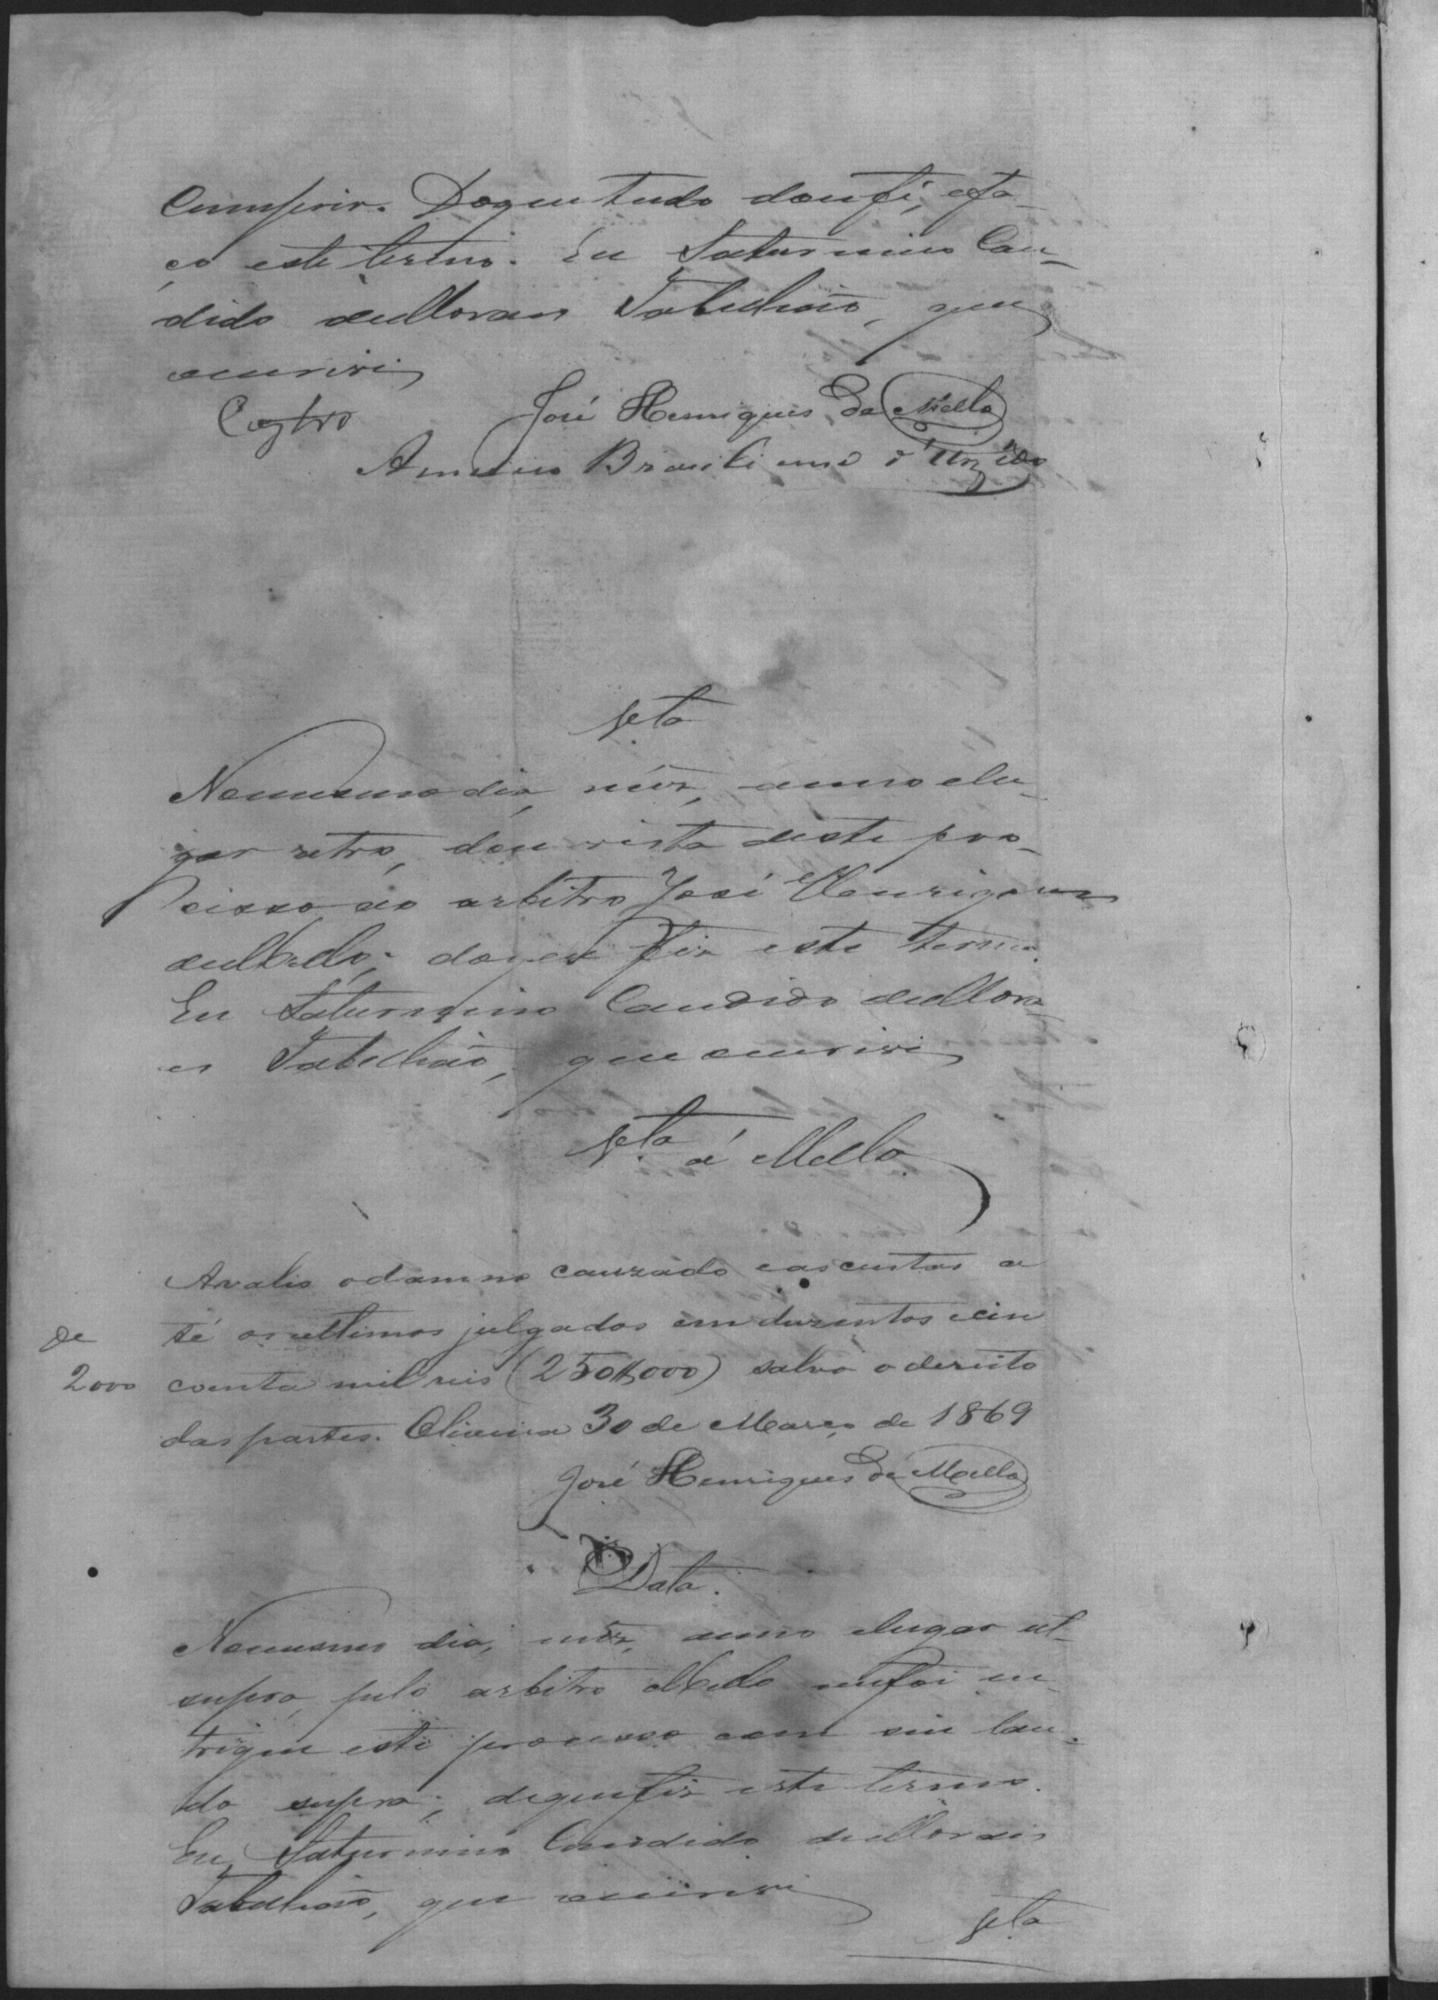 Cumprir. Doque tudo dou fé, e fa-
ço este termo. Eu Saturnino Can-
dido de Moraes Tabellião, que
escrevi
Castro José Henriques de Mello
Americo Brasili
Vta
No mesmo dia, mez, anno e lu-
gar retro, dou vista deste pro-
cesso ao arbitro José Henriques
de Mello; do que fiz este termo.
Eu Saturnino Candido de Mora-
es Tabellião, que escrevi
Vta á Mello
Avalio o damno cauzado e as custas a
té os ultimos julgados em duzentos e cin
coenta mil reis (250$000) salvo o dereito
das partes. Oliveira 30 de Março de 1869
de
2000
José Henriques de Mello
Data.
No mesmo dia, mez, anno e lugar ut-
supra, pelo arbitro Mello me foi en-
tregue este processo com seu lau-
do supra; de que fiz este termo.
Eu, Saturnino Candido de Moraes
Tabellião, que escrevi
Vta